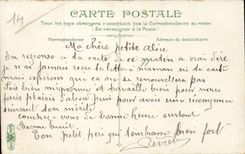 14
CARTE POSTALE
Tous les pays étrangers n'acceptent pas la Correspondance au recto
(Se renseigner à la Poste)
Correspondance
Adresse du destinataire
Ma chère petite Alice
En réponse à ta carte de ce matin à vrai dire
je n'ai jamais reçu la lettre à maman ni de carte
mais espérons que ça ne se renouvellera pas
Sois bien mignonne et travaille bien pour nous
faire plaisir d'abord puis pour avoir une récompense
suivant ton dessin.
couchez-vous de bonne heure surtout
Bonne nuit
Ton petit père qui t'embrasse bien fort